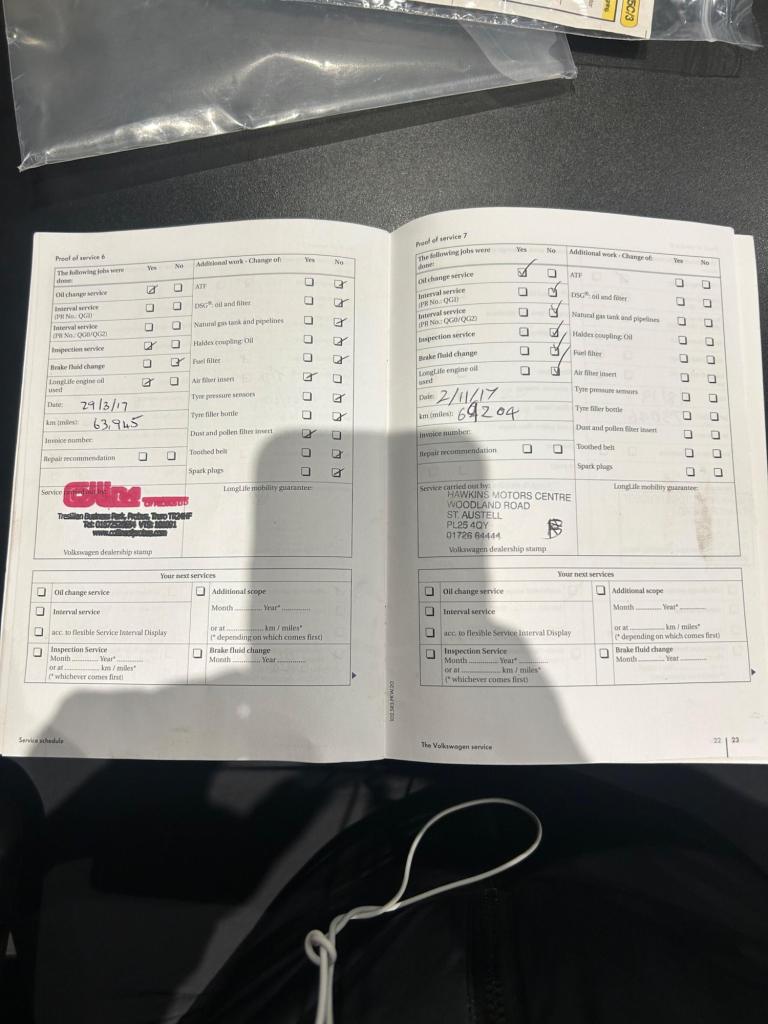 5C/3
Proof of service 6
The following jobs were done: Yes No
Oil change service
Interval service (PR No.: QG1)
Interval service (PR No.: QG0/QG2)
Inspection service
Brake fluid change
LongLife engine oil used
Date: 29/3/17
km (miles): 63,945
Invoice number:
Repair recommendation
Additional work - Change of: Yes No
ATF
DSG®: oil and filter
Natural gas tank and pipelines
Haldex coupling: Oil
Fuel filter
Air filter insert
Tyre pressure sensors
Tyre filler bottle
Dust and pollen filter insert
Toothed belt
Spark plugs
Service
Tresillian Business Park, Probus, Truro TR24HF
Volkswagen dealership stamp
LongLife mobility guarantee:
Your next services
Oil change service
Interval service
acc. to flexible Service Interval Display
Inspection Service
Month Year*
or at km / miles*
(* whichever comes first)
Additional scope
Month Year*
or at km / miles*
(* depending on which comes first)
Brake fluid change
Month Year
Service schedule
Proof of service 7
The following jobs were done: Yes No
Oil change service
Interval service (PR No.: QG1)
Interval service (PR No.: QG0/QG2)
Inspection service
Brake fluid change
LongLife engine oil used
Date: 2/11/17
km (miles): 69204
Invoice number:
Repair recommendation
Additional work - Change of: Yes No
ATF
DSG®: oil and filter
Natural gas tank and pipelines
Haldex coupling: Oil
Fuel filter
Air filter insert
Tyre pressure sensors
Tyre filler bottle
Dust and pollen filter insert
Toothed belt
Spark plugs
Service carried out by:
HAWKINS MOTORS CENTRE
WOODLAND ROAD
ST. AUSTELL
PL25 4QY
01726 64444
Volkswagen dealership stamp
LongLife mobility guarantee:
Your next services
Oil change service
Interval service
acc. to flexible Service Interval Display
Inspection Service
Month Year*
or at km / miles*
(* whichever comes first)
Additional scope
Month Year*
or at km / miles*
(* depending on which comes first)
Brake fluid change
Month Year
The Volkswagen service
22 | 23